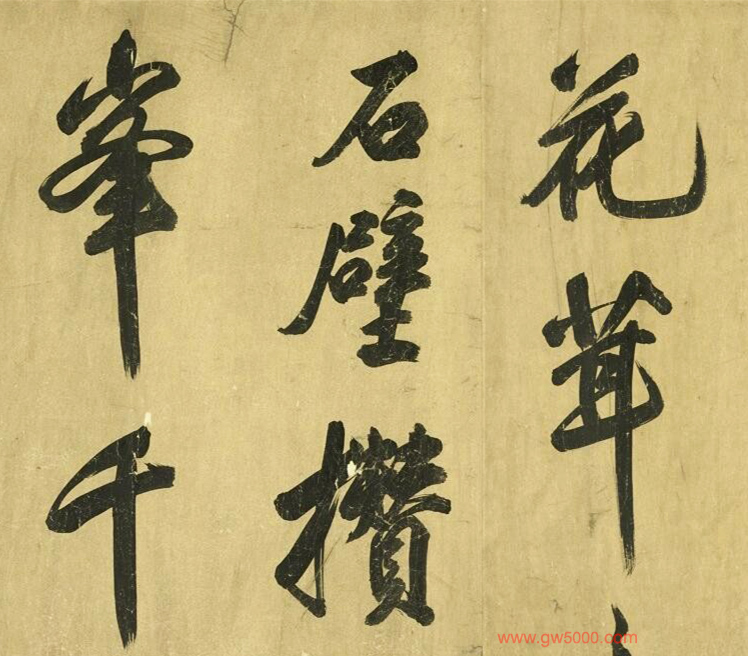 花茸
石壁攢
峯千
www.gw5000.com